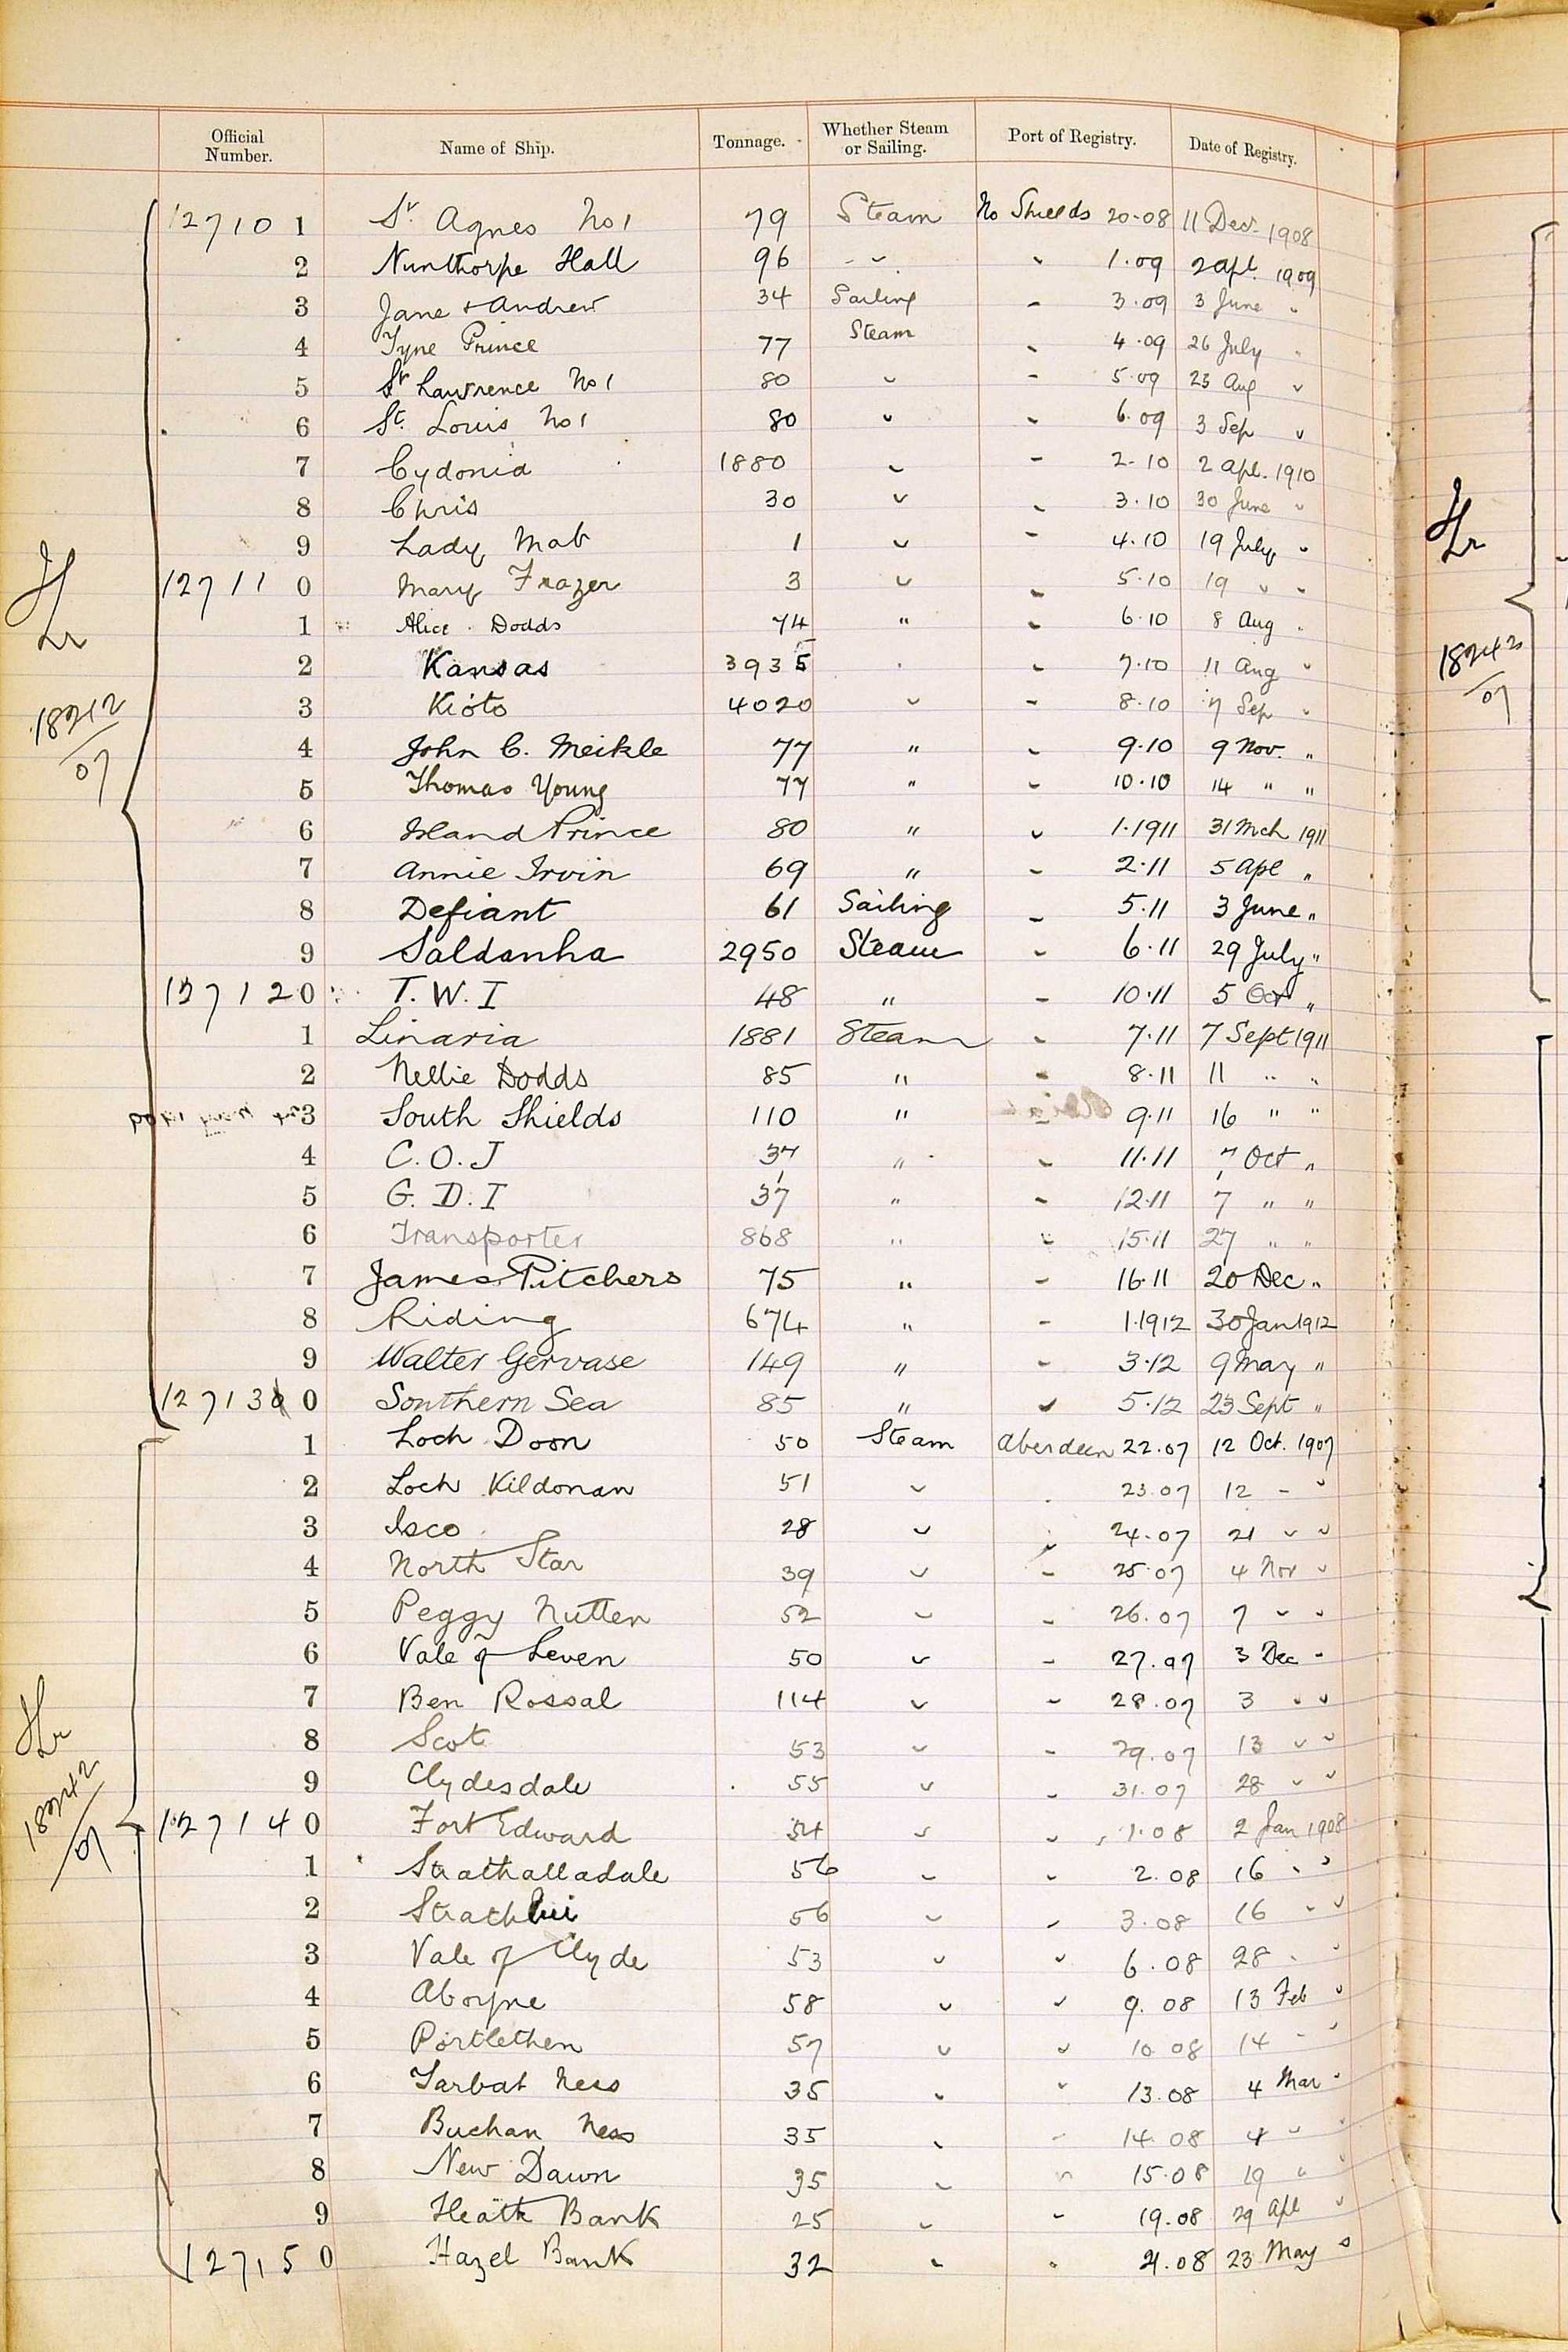 Official Number. Name of Ship. Tonnage. Whether Steam or Sailing. Port of Registry. Date of Registry.
127101 St. Agnes No 1 79 Steam No Shields 20-08 11 Dec. 1908
2 Nunthorpe Hall 96 " " 1.09 2 Apl. 1909
3 Jane & Andrew 34 Sailing " 3.09 3 June "
4 Tyne Prince 77 Steam " 4.09 26 July "
5 St Lawrence No 1 80 " " 5.09 23 Aug "
6 St. Louis No 1 80 " " 6.09 3 Sep "
7 Cydonia 1880 " " 2-10 2 Apl. 1910
8 Chris 30 " " 3.10 30 June "
9 Lady Mab 1 " " 4.10 19 July "
127110 Mary Frazer 3 " " 5.10 19 " "
1 Alice Dodds 74 " " 6.10 8 Aug "
2 Kansas 3935 " " 7.10 11 Aug "
3 Kioto 4020 " " 8.10 7 Sep "
4 John C. Meikle 77 " " 9.10 9 Nov. "
5 Thomas Young 77 " " 10.10 14 " "
6 Island Prince 80 " " 1.1911 31 Mch 1911
7 Annie Irvin 69 " " 2.11 5 Apl "
8 Defiant 61 Sailing " 5.11 3 June "
9 Saldanha 2950 Steam " 6.11 29 July "
127120 T. W. I 48 " " 10.11 5 Oct "
1 Linaria 1881 Steam " 7.11 7 Sept 1911
2 Nellie Dodds 85 " " 8.11 11 " "
3 South Shields 110 " " 9.11 16 " "
4 C. O. J 37 " " 11.11 7 Oct "
5 G. D. I 37 " " 12.11 7 " "
6 Transporter 868 " " 15.11 27 " "
7 James Pitchers 75 " " 16.11 20 Dec "
8 Riding 674 " " 1.1912 30 Jan 1912
9 Walter Gervase 149 " " 3.12 9 May "
127130 Southern Sea 85 " " 5.12 23 Sept "
1 Loch Doon 50 Steam Aberdeen 22.07 12 Oct. 1907
2 Loch Kildonan 51 " " 23.07 12 " "
3 Isco 28 " " 24.07 21 " "
4 North Star 39 " " 25.07 4 Nov "
5 Peggy Nutten 52 " " 26.07 7 " "
6 Vale of Leven 50 " " 27.07 3 Dec "
7 Ben Rossal 114 " " 28.07 3 " "
8 Scot 53 " " 29.07 13 " "
9 Clydesdale 55 " " 31.07 28 " "
127140 Fort Edward 54 " " 1.08 2 Jan 1908
1 Strathalladale 56 " " 2.08 16 " "
2 Strathlui 56 " " 3.08 16 " "
3 Vale of Clyde 53 " " 6.08 28 " "
4 Aboyne 58 " " 9.08 13 Feb "
5 Portlethen 57 " " 10.08 14 " "
6 Tarbat Ness 35 " " 13.08 4 Mar "
7 Buchan Ness 35 " " 14.08 4 "
8 New Dawn 35 " " 15.08 19 "
9 Heath Bank 25 " " 19.08 29 Apl "
127150 Hazel Bank 32 " " 21.08 23 May "
18242
07